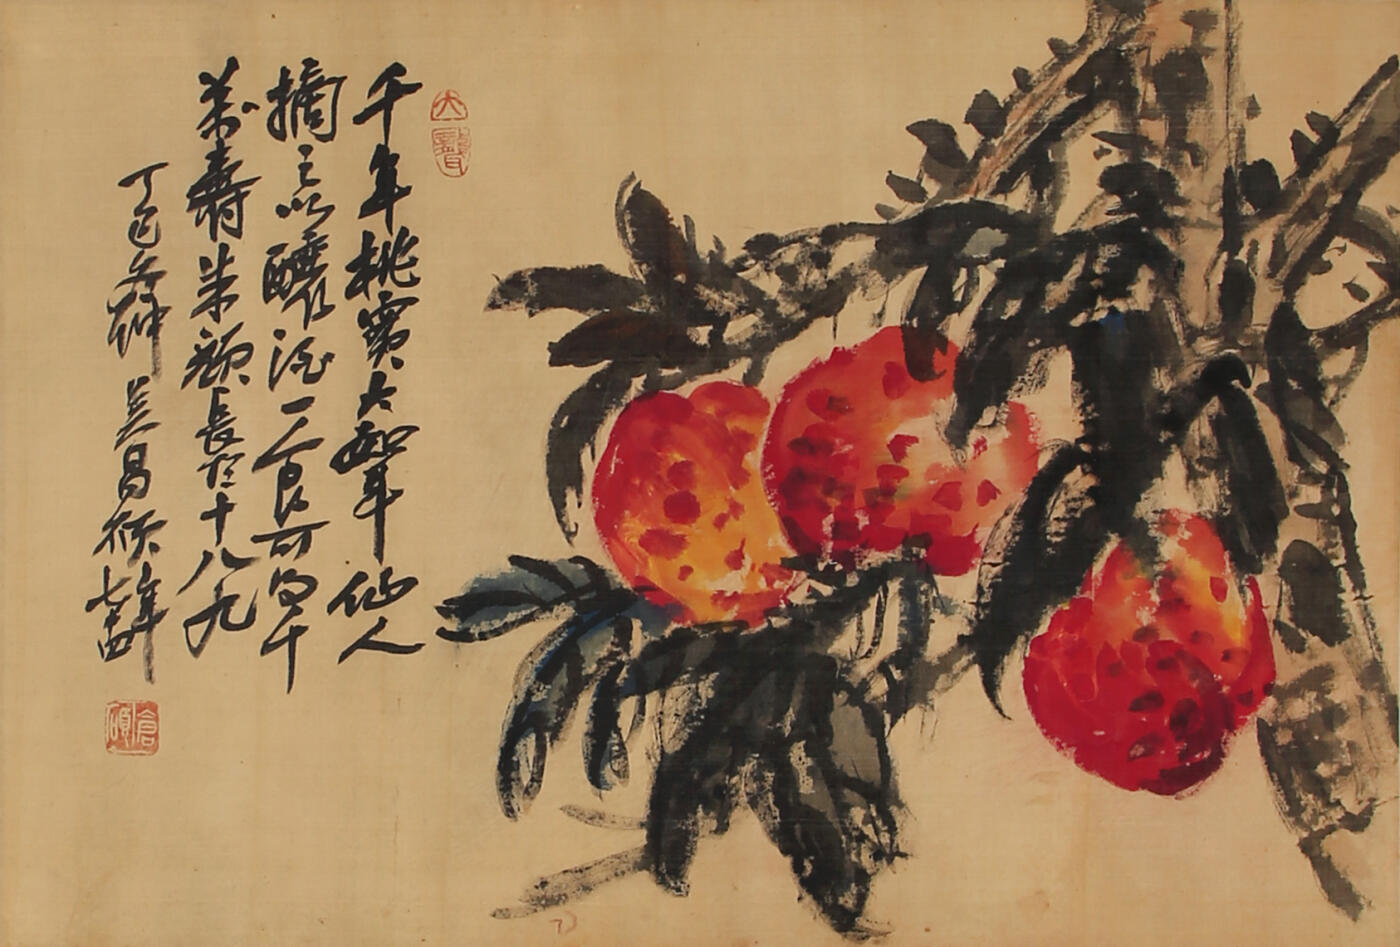 大聾
千年桃實大如斗仙人
摘之以釀酒一食可得千
萬壽朱顏長如十八九
丁巳冬仲吳昌碩年七十四
倉碩